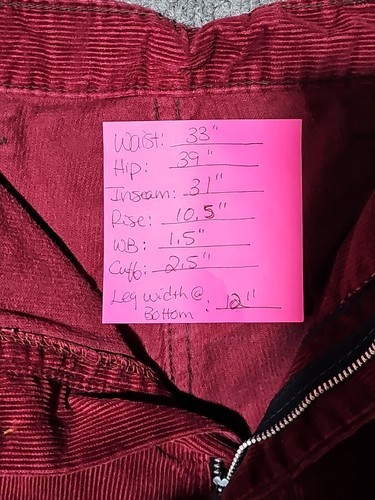 Waist: 33"
Hip: 39"
Inseam: 31"
Rise: 10.5"
WB: 1.5"
Cuff: 2.5"
Leg Width @
Bottom : 12"